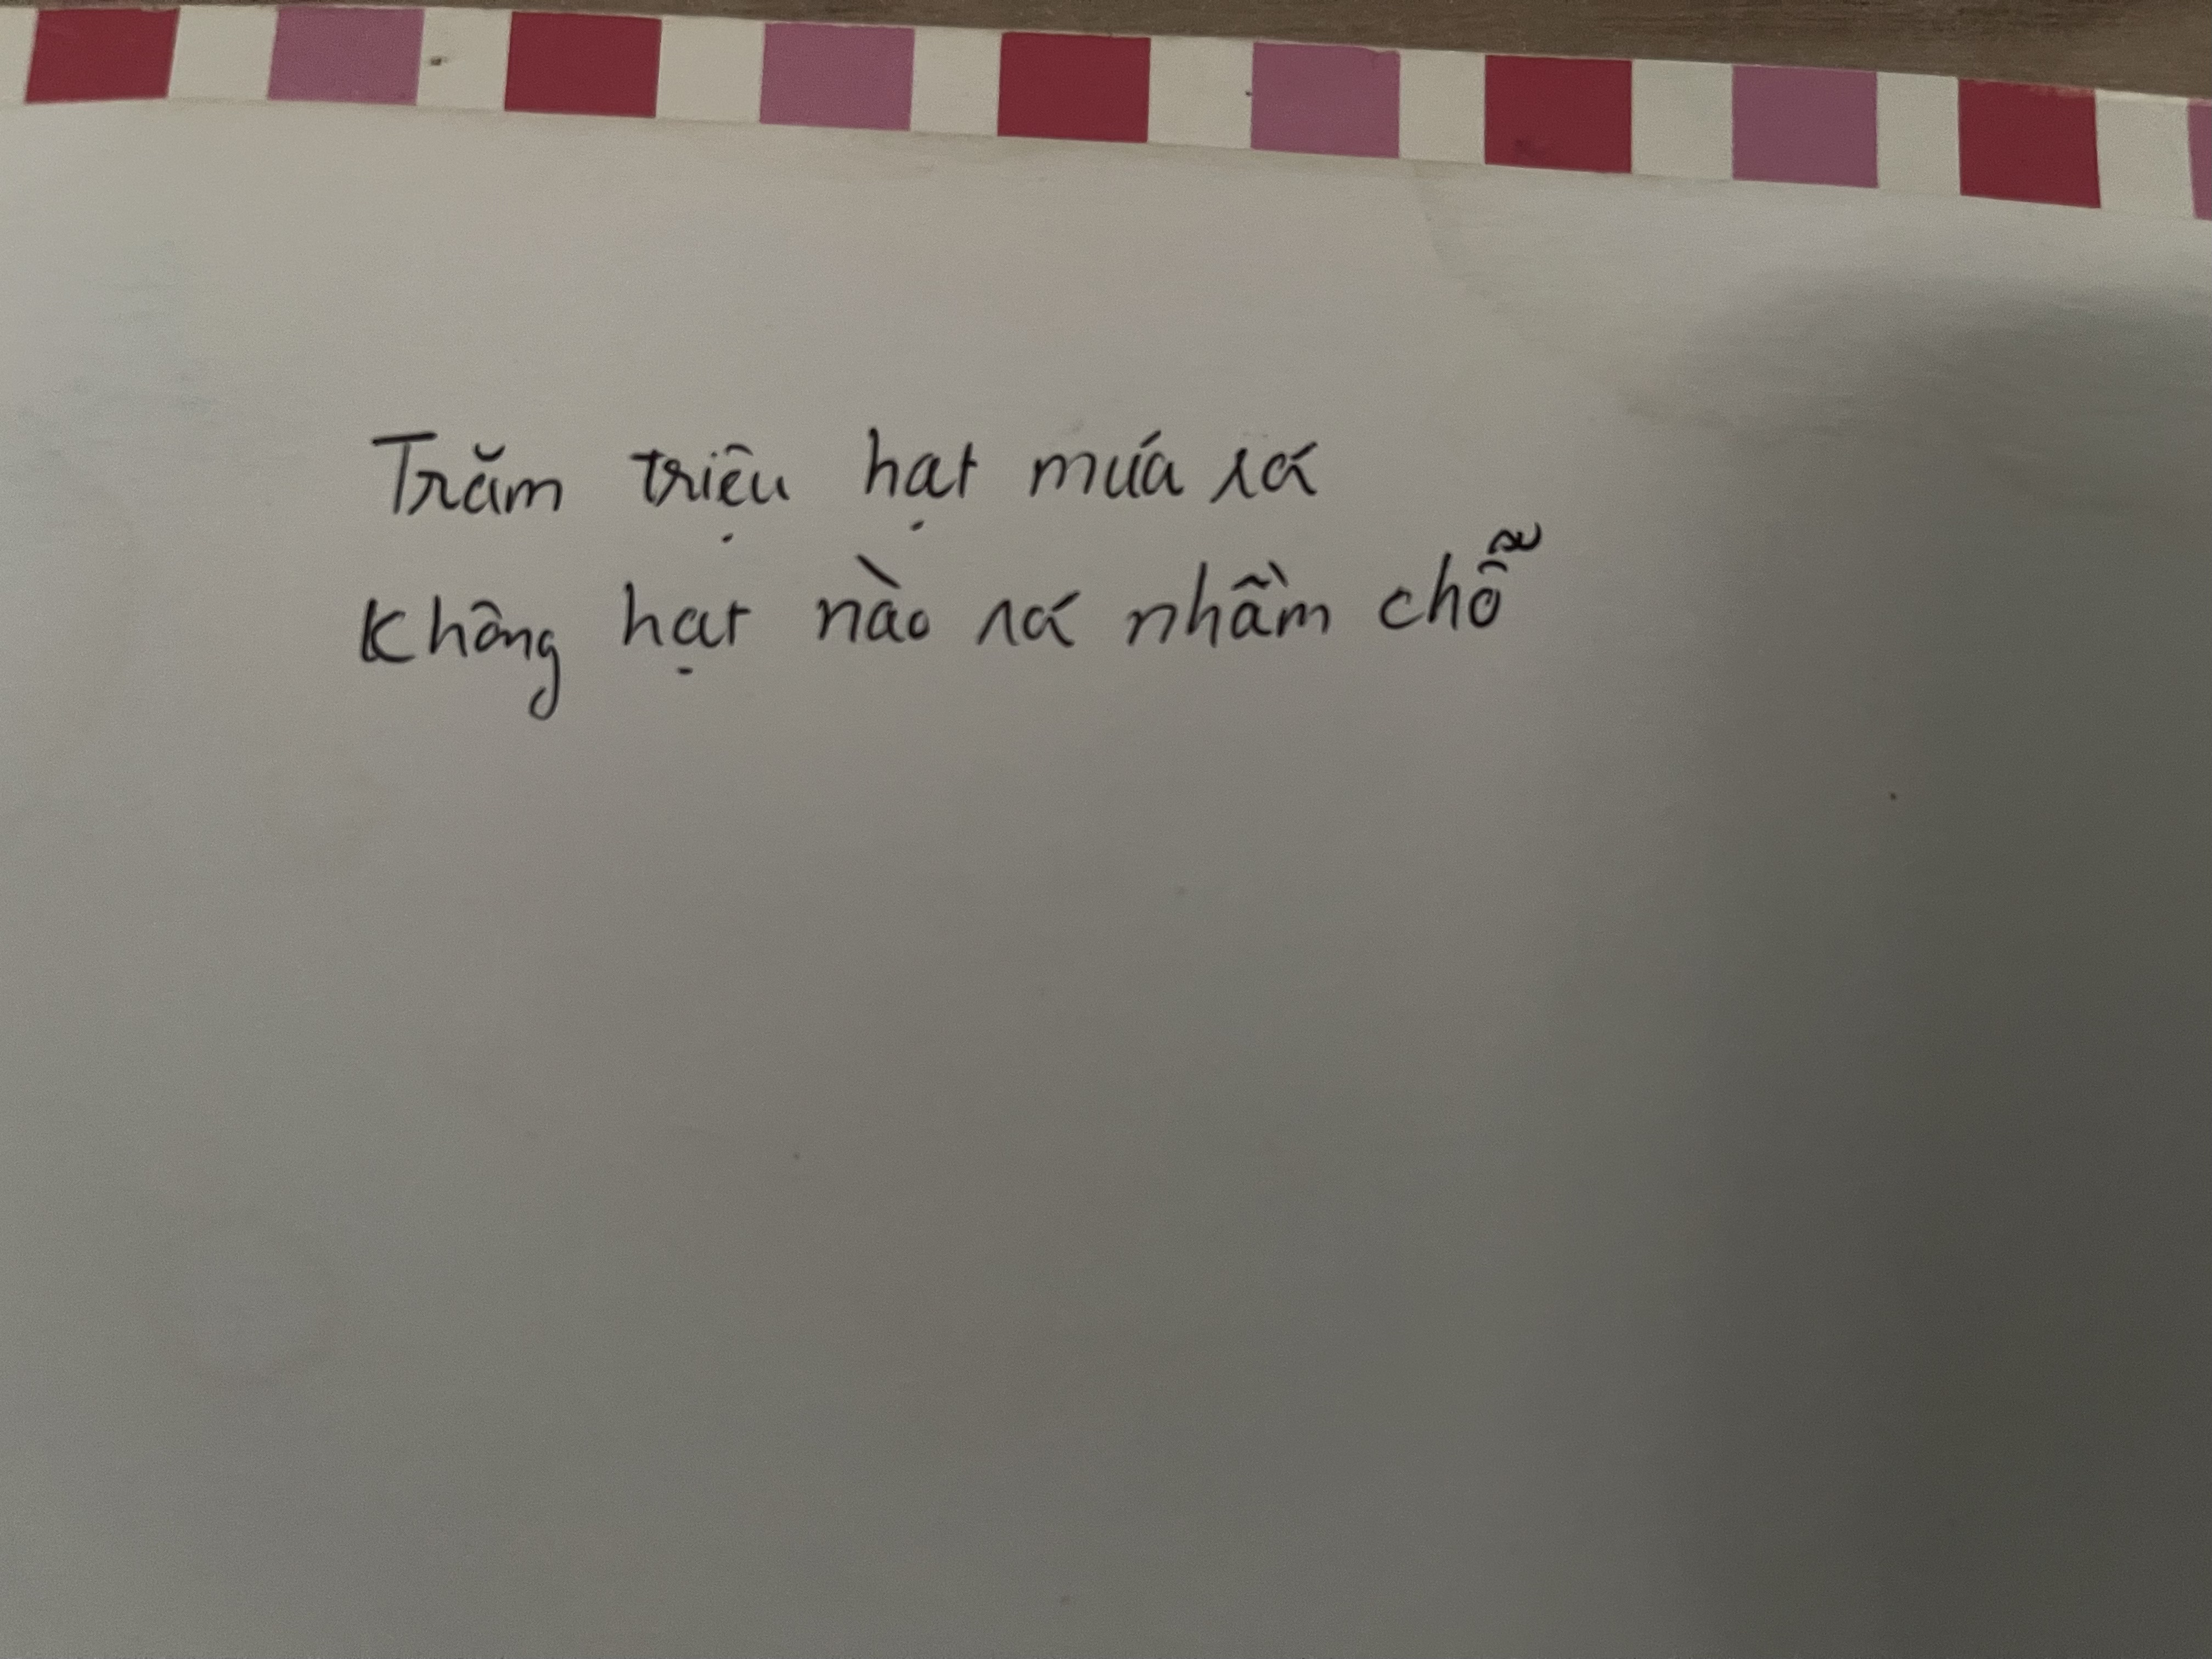 Trăm triệu hạt múa xá
Không hạt nào xá nhầm chỗ